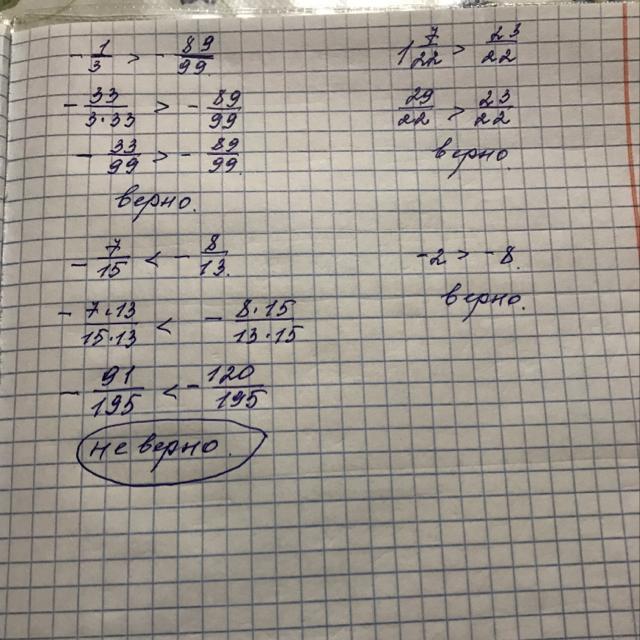 -1/3 > -89/99
-33/3·33 > -89/99
-33/99 > -89/99
верно.
-7/15 < -8/13.
-7·13/15·13 < -8·15/13·15
-91/195 < -120/195
не верно.
1 7/22 > 23/22
29/22 > 23/22
верно.
-2 > -8.
верно.